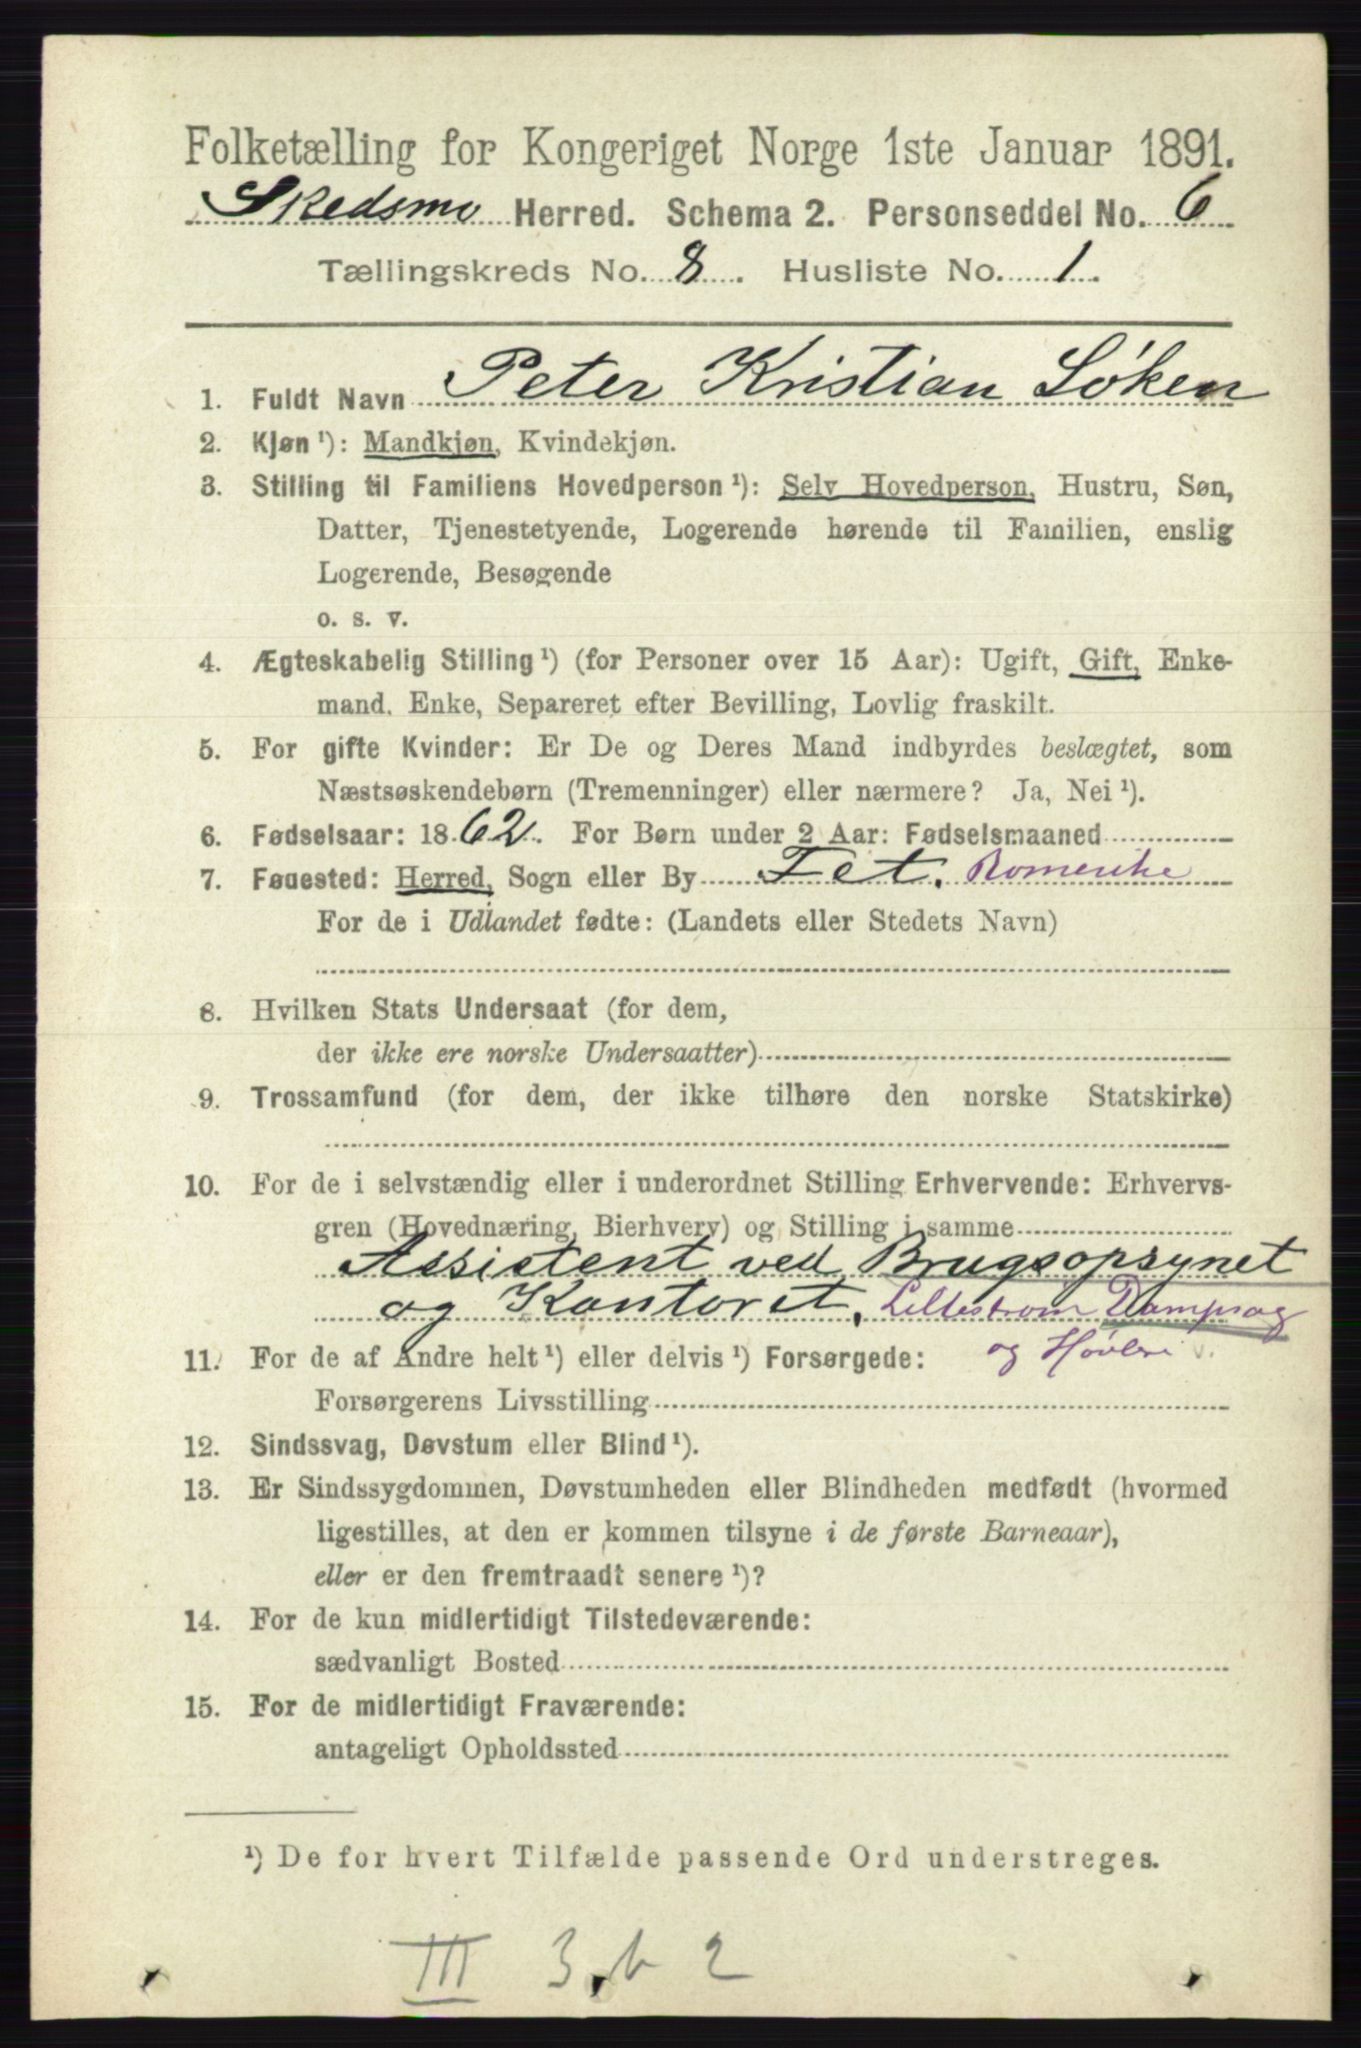 Folketælling for Kongeriget Norge 1ste Januar 1891.
Skedsmo Herred. Schema 2. Personseddel No. 6
Tællingskreds No. 8. Husliste No. 1.
1. Fuldt Navn Peter Kristian Løken
2. Kjøn ¹): Mandkjøn, Kvindekjøn.
3. Stilling til Familiens Hovedperson ¹): Selv Hovedperson, Hustru, Søn,
Datter, Tjenestetyende, Logerende hørende til Familien, enslig
Logerende, Besøgende
o. s. v.
4. Ægteskabelig Stilling ¹) (for Personer over 15 Aar): Ugift, Gift, Enke-
mand, Enke, Separeret efter Bevilling, Lovlig fraskilt.
5. For gifte Kvinder: Er De og Deres Mand indbyrdes beslægtet, som
Næstsøskendebørn (Tremenninger) eller nærmere? Ja, Nei ¹).
6. Fødselsaar: 1862. For Børn under 2 Aar: Fødselsmaaned
7. Føuested: Herred, Sogn eller By Fet. Romerike
For de i Udlandet fødte: (Landets eller Stedets Navn)
8. Hvilken Stats Undersaat (for dem,
der ikke ere norske Undersaatter)
9. Trossamfund (for dem, der ikke tilhøre den norske Statskirke)
10. For de i selvstændig eller i underordnet Stilling Erhvervende: Erhvervs-
gren (Hovednæring, Bierhverv) og Stilling i samme
Assistent ved Brugsopsynet
og Kontoret, Lillestrøm Dampsag
og Høvleri
11. For de af Andre helt ¹) eller delvis ¹) Forsørgede:
Forsørgerens Livsstilling
12. Sindssvag, Døvstum eller Blind ¹).
13. Er Sindssygdommen, Døvstumheden eller Blindheden medfødt (hvormed
ligestilles, at den er kommen tilsyne i de første Barneaar),
eller er den fremtraadt senere ¹)?
14. For de kun midlertidigt Tilstedeværende:
sædvanligt Bosted
15. For de midlertidigt Fraværende:
antageligt Opholdssted
¹) De for hvert Tilfælde passende Ord understreges.
III 3. b 2